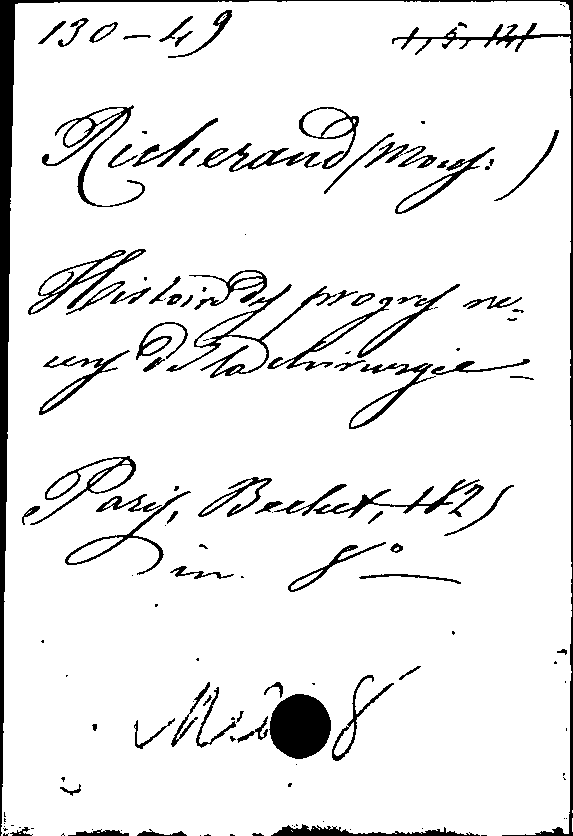 130-49 1,5,121
Richerand (Mons: )
Histoire des progres re-
cens de la chirurgie -
Paris, Bechet, 1825
in 8°
Med 8